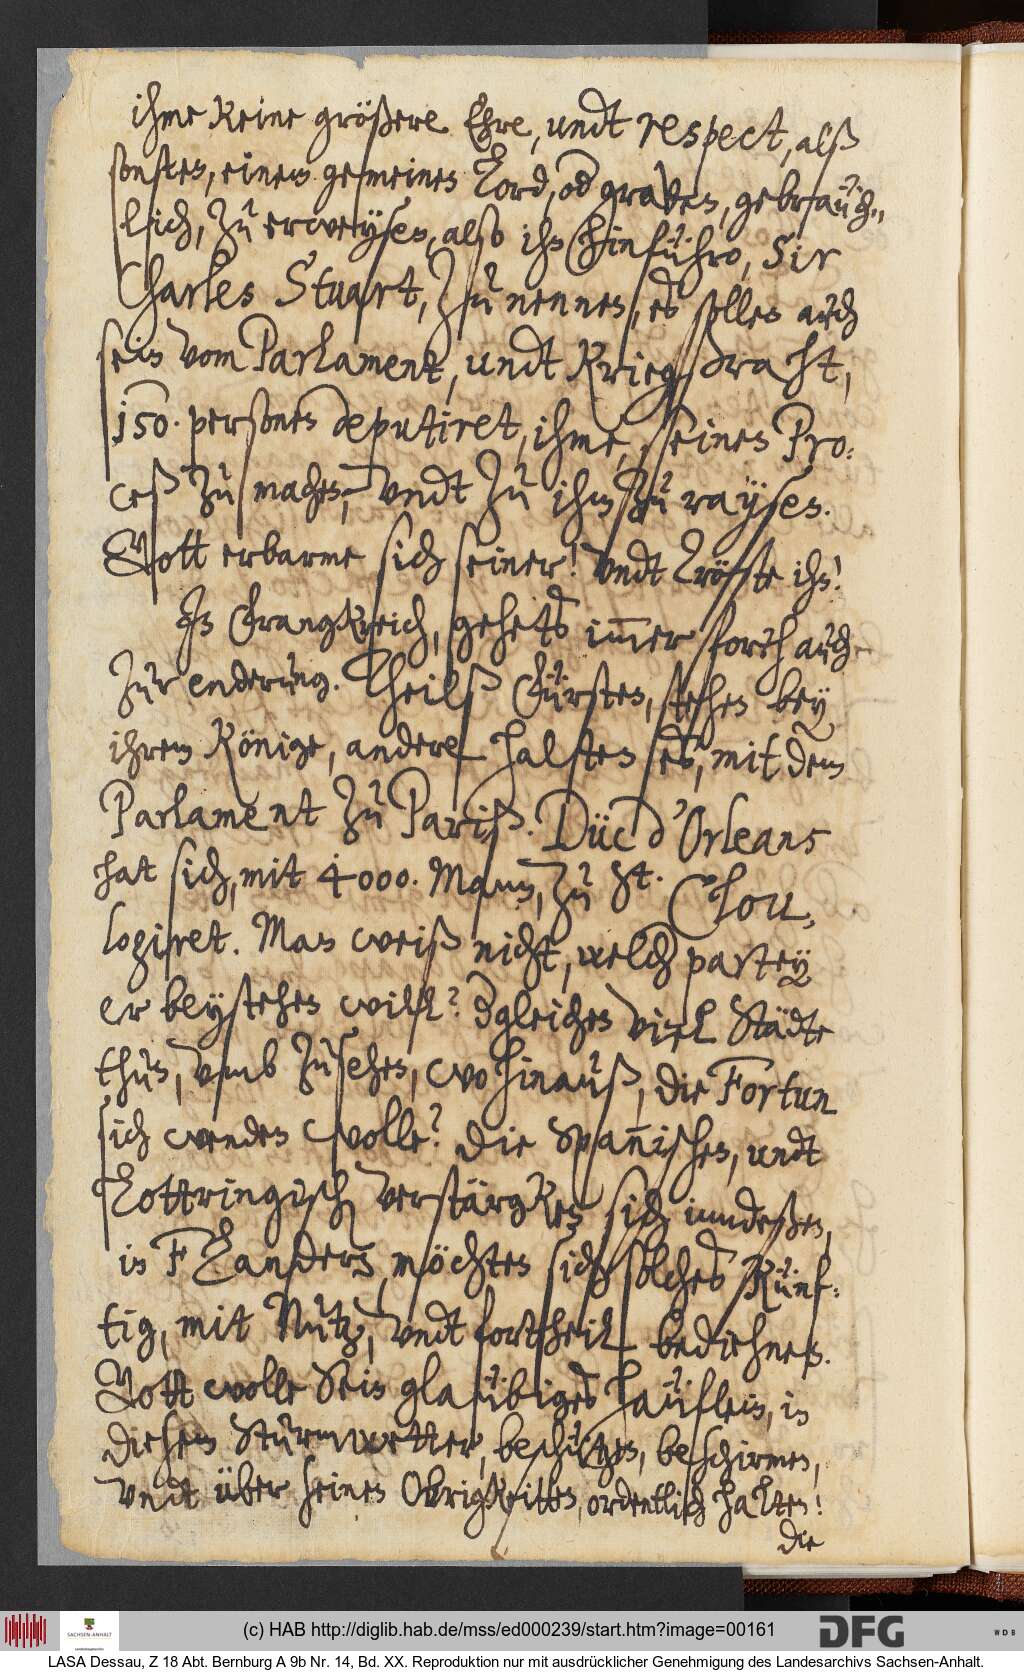 ihme keine größere Ehre, undt respect, alß
sonsten, einem gemeinen Lord, od graven, gebraüch„
lich, zu erweysen, also ihn hinführo, Sir
Charles Stuart, zu nennen, es sollen auch
sein vom Parlament, undt Kriegsraht,
150. personen deputiret, ihme, seinen Pro:
ceß zu machen, undt zu ihm zu raysen.
Gott erbarme sich seiner! undt tröste ihn!
In Frangkreich, gehets immer forth auch
zur enderung. Theilß Fürsten, stehen bey
ihrem Könige, andere haltens, mit dem
Parlament zu Pariß. Düc d'Orleans
hat sich, mit 4000. Mann, zu St. Clou,
logiret. Man weiß nicht, welch partey
er beystehen will? dgleichen viel Städte
thun, umb zusehen, wo hinauß, die Fortun
sich wenden wolle? die Spannischen, undt
Lottringisch verstärgken sich inndeßen,
in Flandern, möchten sich solches künf:
tig, mit Nutz, undt fortheil bediehnen.
Gott wolle Sein glaübiges haüflein, in
diesem Sturmwetter, beschützen, beschirmen,
undt über seinen Obrigkeitten, ordentlich halten!
die
(c) HAB http://diglib.hab.de/mss/ed000239/start.htm?image=00161
SACHSEN-ANHALT
DFG
WDB
LASA Dessau, Z 18 Abt. Bernburg A 9b Nr. 14, Bd. XX. Reproduktion nur mit ausdrücklicher Genehmigung des Landesarchivs Sachsen-Anhalt.